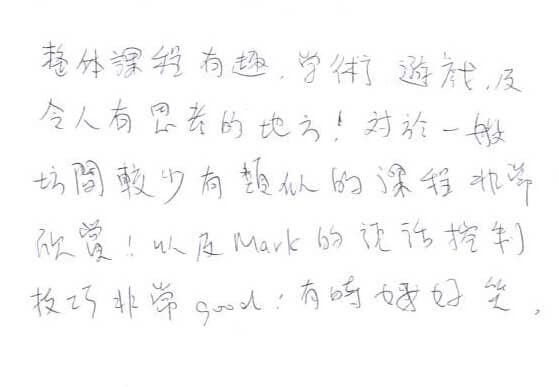 整体課程有趣、学術、遊戲、及
令人有思考的地方！对於一般
坊間較少有類似的課程非常
欣賞！以及Mark的说话控制
技巧非常good！有時好好笑。